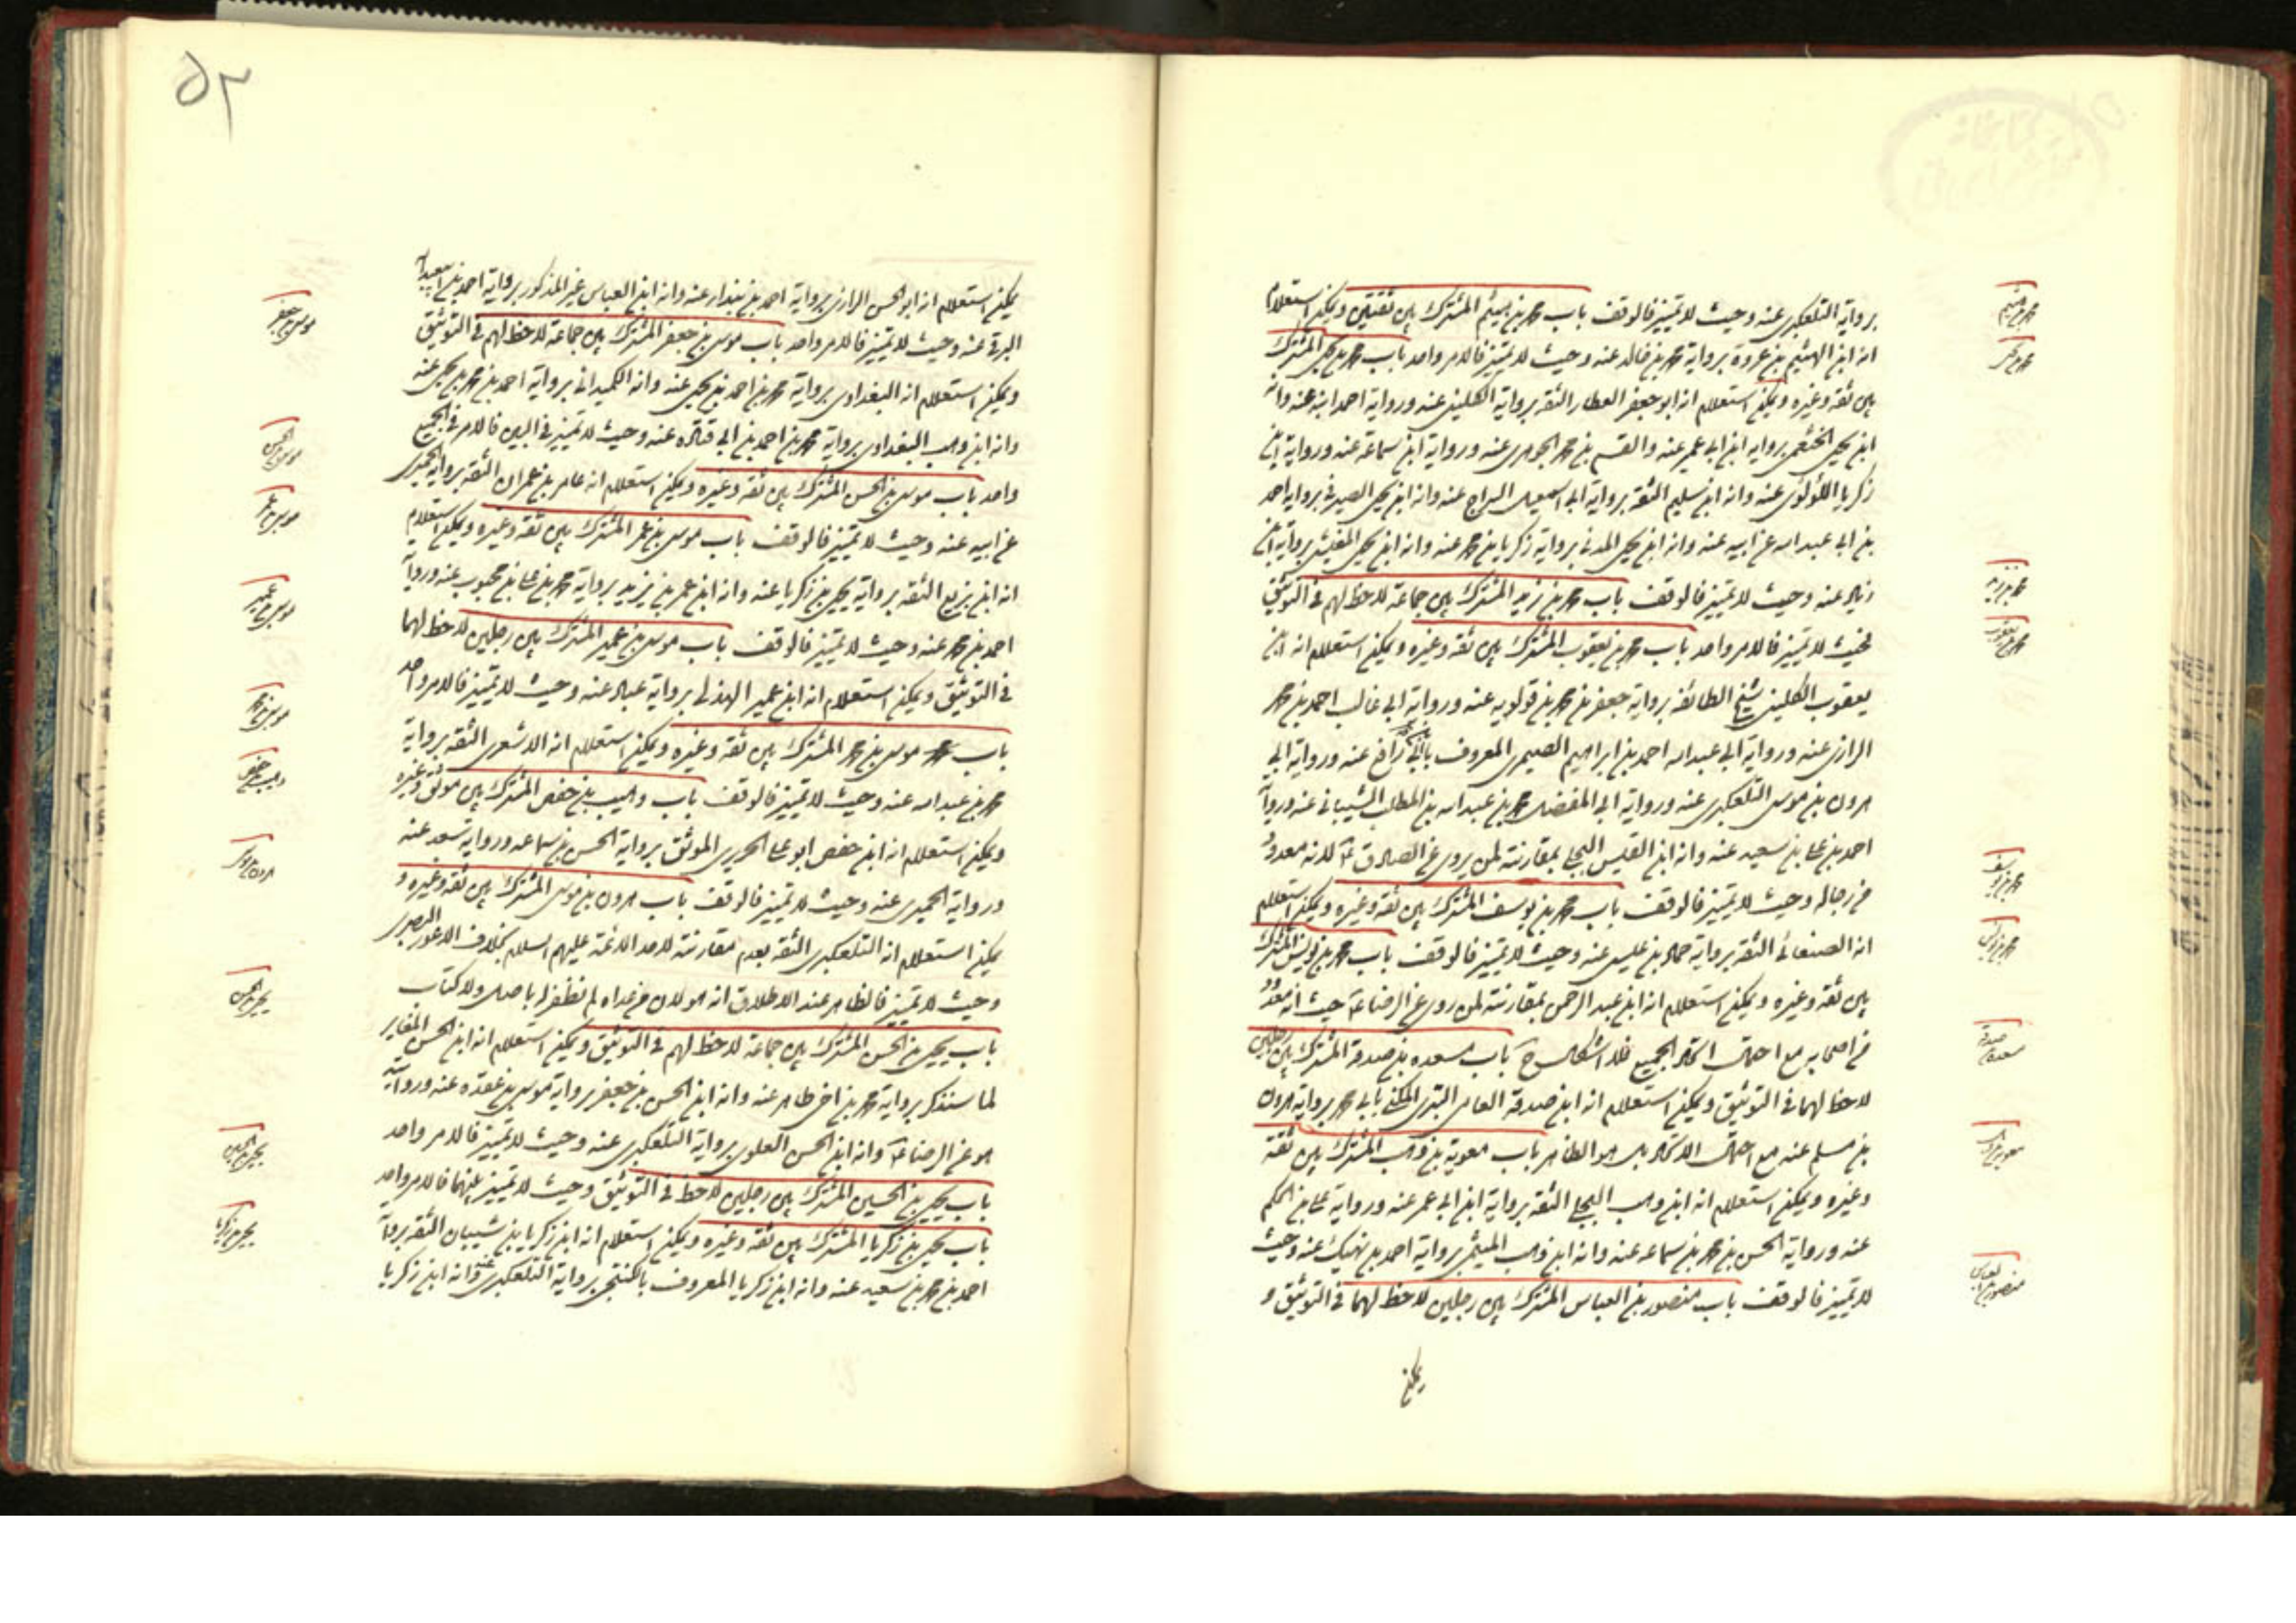 برواية التلعكبرى عنه وحيث لا تميز فالوقف باب محمد بن هيثم المشترك بين ثقتين ويمكن استعلام
انه ابن الهيثم بن عروة برواية محمد بن خالد عنه وحيث لا تميز فالامر واحد باب محمد بن يحيى المشترك
بين ثقة وغيره ويمكن استعلام انه ابو جعفر العطار الثقة برواية الكلينى عنه ورواية احمد ابنه عنه وانه
ابن يحيى الخثعمى برواية ابن ابى عمير عنه والقسم بن محمد الجوهرى عنه ورواية ابن سماعة عنه ورواية ابن
زكريا اللؤلؤى عنه وانه ابن سليم الثقة برواية ابى اسمعيل السراج عنه وانه ابن يحيى الصيرفى برواية احمد
بن ابى عبد الله عن ابيه عنه وانه ابن يحيى المدنى برواية زكريا بن محمد عنه وانه ابن يحيى برواية ابن
زياد عنه وحيث لا تميز فالوقف باب محمد بن زيد المشترك بين جماعة لا حظ لهم فى التوثيق
فحيث لا تميز فالامر واحد باب محمد بن يعقوب المشترك بين ثقة وغيره ويمكن استعلام انه ابن
يعقوب الكلينى شيخ الطائفة برواية جعفر بن محمد بن قولويه عنه ورواية ابى غالب احمد بن محمد
الرازى عنه ورواية ابى عبد الله احمد بن ابراهيم الصيمرى المعروف بابن ابى رافع عنه ورواية ابى
هرون بن موسى التلعكبرى عنه ورواية ابى المفضل محمد بن عبد الله بن المطلب الشيبانى عنه ورواية
احمد بن على بن سعيد عنه وانه ابن القيس البجلى بمقارنته لمن يروى عن الصادق ع لانه معدود
فى رجاله وحيث لا تميز فالوقف باب محمد بن يوسف المشترك بين ثقة وغيره ويمكن استعلام
انه الصنعانى الثقة برواية حماد بن عيسى عنه وحيث لا تميز فالوقف باب محمد بن يونس المشترك
بين ثقة وغيره ويمكن استعلام انه ابن عبد الرحمن بمقارنته لمن روى عن الرضا ع حيث انه معدود
فى اصحابه مع احتمال اتحاد الجميع فلا اشكال ح باب مسعده بن صدقة المشترك بين رجلين
لا حظ لهما فى التوثيق ويمكن استعلام انه ابن صدقة العامى البترى المكنى بابى محمد برواية هرون
بن مسلم عنه مع احتمال الاتحاد بل هو الظاهر باب معوية بن وهب المشترك بين ثقة
وغيره ويمكن استعلام انه ابن وهب البجلى الثقة برواية ابن ابى عمير عنه ورواية على بن الحكم
عنه ورواية الحسن بن محمد بن سماعه عنه وانه ابن وهب الميثمى برواية احمد بن نهيك عنه وحيث
لا تميز فالوقف باب منصور بن العباس المشترك بين رجلين لا حظ لهما فى التوثيق و
يمكن
محمد بن هيثم
محمد بن يحيى
محمد بن زيد
محمد بن يعقوب
محمد بن يوسف
محمد بن يونس
مسعدة بن صدقة
معوية بن وهب
منصور بن العباس
٥٢
يمكن استعلام انه ابو الحسن الرازى برواية احمد بن بندار عنه وانه ابن العباس غير المذكور برواية احمد بن ابى عبد الله
البرقى عنه وحيث لا تميز فالامر واحد باب موسى بن جعفر المشترك بين جماعة لا حظ لهم فى التوثيق
ويمكن استعلام انه البغدادى برواية محمد بن احمد بن يحيى عنه وانه الكميدانى برواية احمد بن محمد بن يحيى عنه
وانه ابن وهب البغدادى برواية محمد بن احمد بن ابى قتاده عنه وحيث لا تميز فى البين فالامر فى الجميع
واحد باب موسى بن الحسن المشترك بين ثقة وغيره ويمكن استعلام انه عامر بن عمران الثقة برواية الحميرى
عن ابيه عنه وحيث لا تميز فالوقف باب موسى بن عمر المشترك بين ثقة وغيره ويمكن استعلام
انه ابن بزيع الثقة برواية يحيى بن زكريا عنه وانه ابن عمر بن يزيد برواية محمد بن على بن محبوب عنه ورواية
احمد بن محمد عنه وحيث لا تميز فالوقف باب موسى بن عمير المشترك بين رجلين لا حظ لهما
فى التوثيق ويمكن استعلام انه ابن عمير الهذلى برواية عباد عنه وحيث لا تميز فالامر واحد
باب موسى بن محمد المشترك بين ثقة وغيره ويمكن استعلام انه الاشعرى الثقة برواية
محمد بن عبد الله عنه وحيث لا تميز فالوقف باب وهيب بن حفص المشترك بين موثق وغيره
ويمكن استعلام انه ابن حفص ابو على الجريرى الموثق برواية الحسن بن سماعه ورواية سعد عنه
ورواية الحميرى عنه وحيث لا تميز فالوقف باب هرون بن موسى المشترك بين ثقة وغيره و
يمكن استعلام انه التلعكبرى الثقة بعدم مقارنته لاحد الائمة عليهم السلام بخلاف الاعور البصرى
وحيث لا تميز فالظاهر عند الاطلاق انه هو لان من عداه لم نظفر له باصل ولا كتاب
باب يحيى بن الحسن المشترك بين جماعة لا حظ لهم فى التوثيق ويمكن استعلام انه ابن الحسن المغاير
لما سنذكر برواية محمد بن اخى طاهر عنه وانه ابن الحسن بن جعفر برواية موسى بن عقده عنه وروايته
هو عن الرضا ع وانه ابن الحسن العلوى برواية التلعكبرى عنه وحيث لا تميز فالامر واحد
باب يحيى بن الحسين المشترك بين رجلين لا حظ فى التوثيق وحيث لا تميز بينهما فالامر واحد
باب يحيى بن زكريا المشترك بين ثقة وغيره ويمكن استعلام انه ابن زكريا بن شيبان الثقة برواية
احمد بن محمد بن سعيد عنه وانه ابن زكريا المعروف بالكنتجى برواية التلعكبرى عنه وانه ابن زكريا
موسى بن جعفر
موسى بن الحسن
موسى بن عمر
موسى بن عمير
موسى بن محمد
وهيب بن حفص
هرون بن موسى
يحيى بن الحسن
يحيى بن الحسين
يحيى بن زكريا